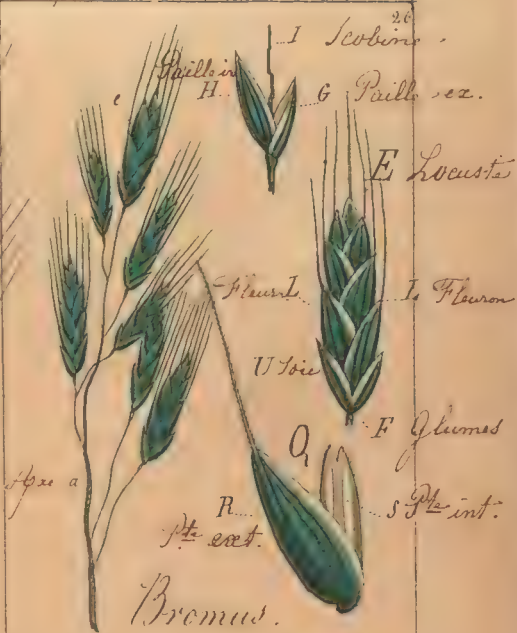 26
I Scobine.
Paille in
H
G Paille ex.
e
E Locuste
Fleur L
L Fleuron
U Soie
F Glumes
Q
Axe a
R
S Pte int.
Pte ext.
Bromus.